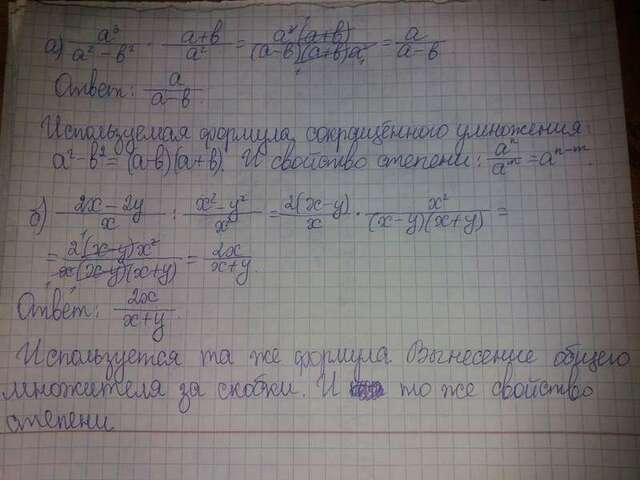 а) a³/(a²-b²) · (a+b)/a² = a³(a+b)/((a-b)(a+b)a²) = a/(a-b)
Ответ: a/(a-b).
Используемая формула сокращённого умножения:
a²-b²=(a-b)(a+b). И свойство степени: aⁿ/aᵐ = aⁿ⁻ᵐ.
б) (2x-2y)/x : (x²-y²)/x² = 2(x-y)/x · x²/((x-y)(x+y)) =
= 2(x-y)x²/(x(x-y)(x+y)) = 2x/(x+y).
Ответ: 2x/(x+y).
Используется та же формула. Вынесение общего
множителя за скобки. И то же свойство
степени